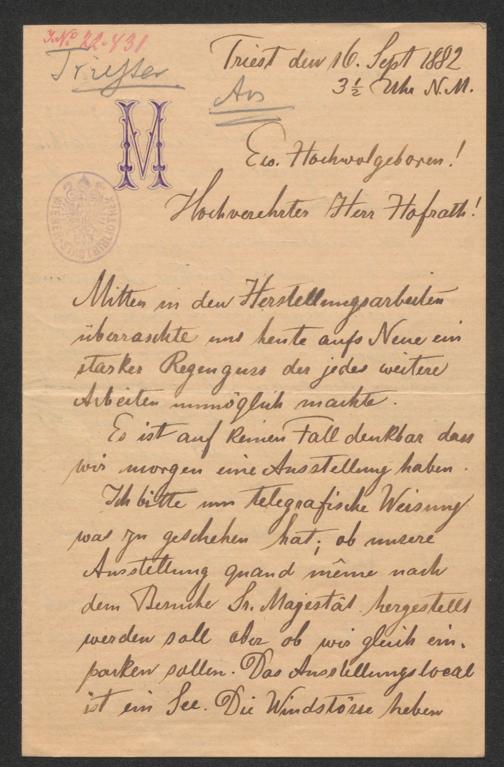 J.No. 22.431
Triester
Aus
Triest den 16. Sept 1882
3 ½ Uhr N.M.
M
Ew. Hochwolgeboren!
Hochverehrter Herr Hofrath!
Mitten in den Herstellungsarbeiten
überraschte uns heute aufs Neue ein
starker Regenguss der jedes weitere
Arbeiten unmöglich machte.
Es ist auf keinen Fall denkbar dass
wir morgen eine Ausstellung haben.
Ich bitte um telegrafische Weisung
was zu geschehen hat; ob unsere
Ausstellung quand même nach
dem Besuche Sr. Majestät hergestellt
werden soll oder ob wir gleich ein-
packen sollen. Das Ausstellungslocal
ist ein See. Die Windstösse heben